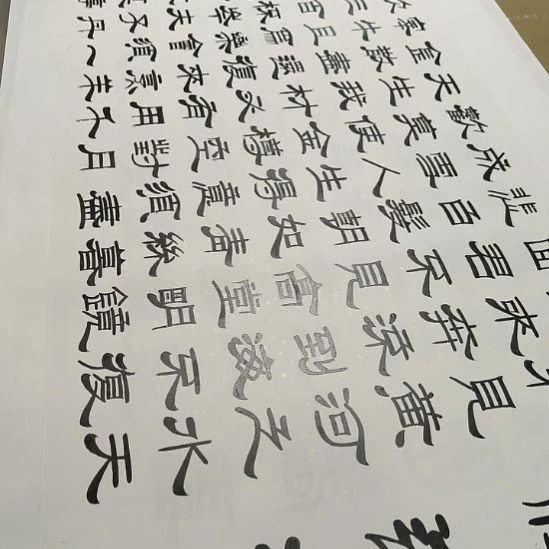 見黃河之水天
來奔流到海不復
回君不見高堂明鏡
悲白髮朝如青絲暮
成雪人生得意須盡
歡莫使金樽空對月
天生我材必有用千
金散盡還復來烹羊
宰牛且為樂會須一